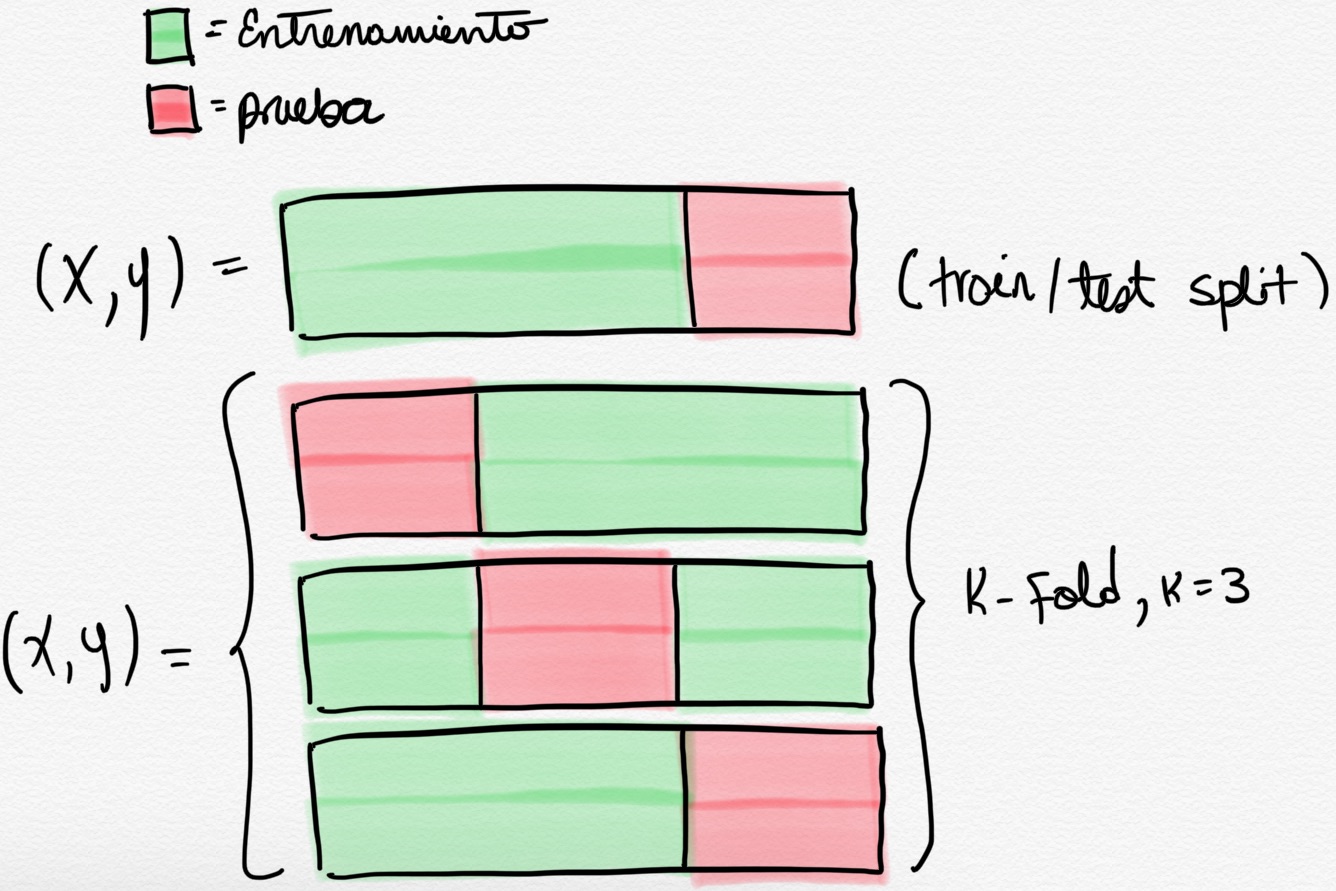 = Entrenamiento
= prueba
(X,y) =
(train/test split)
(X,y) =
K-Fold, K=3